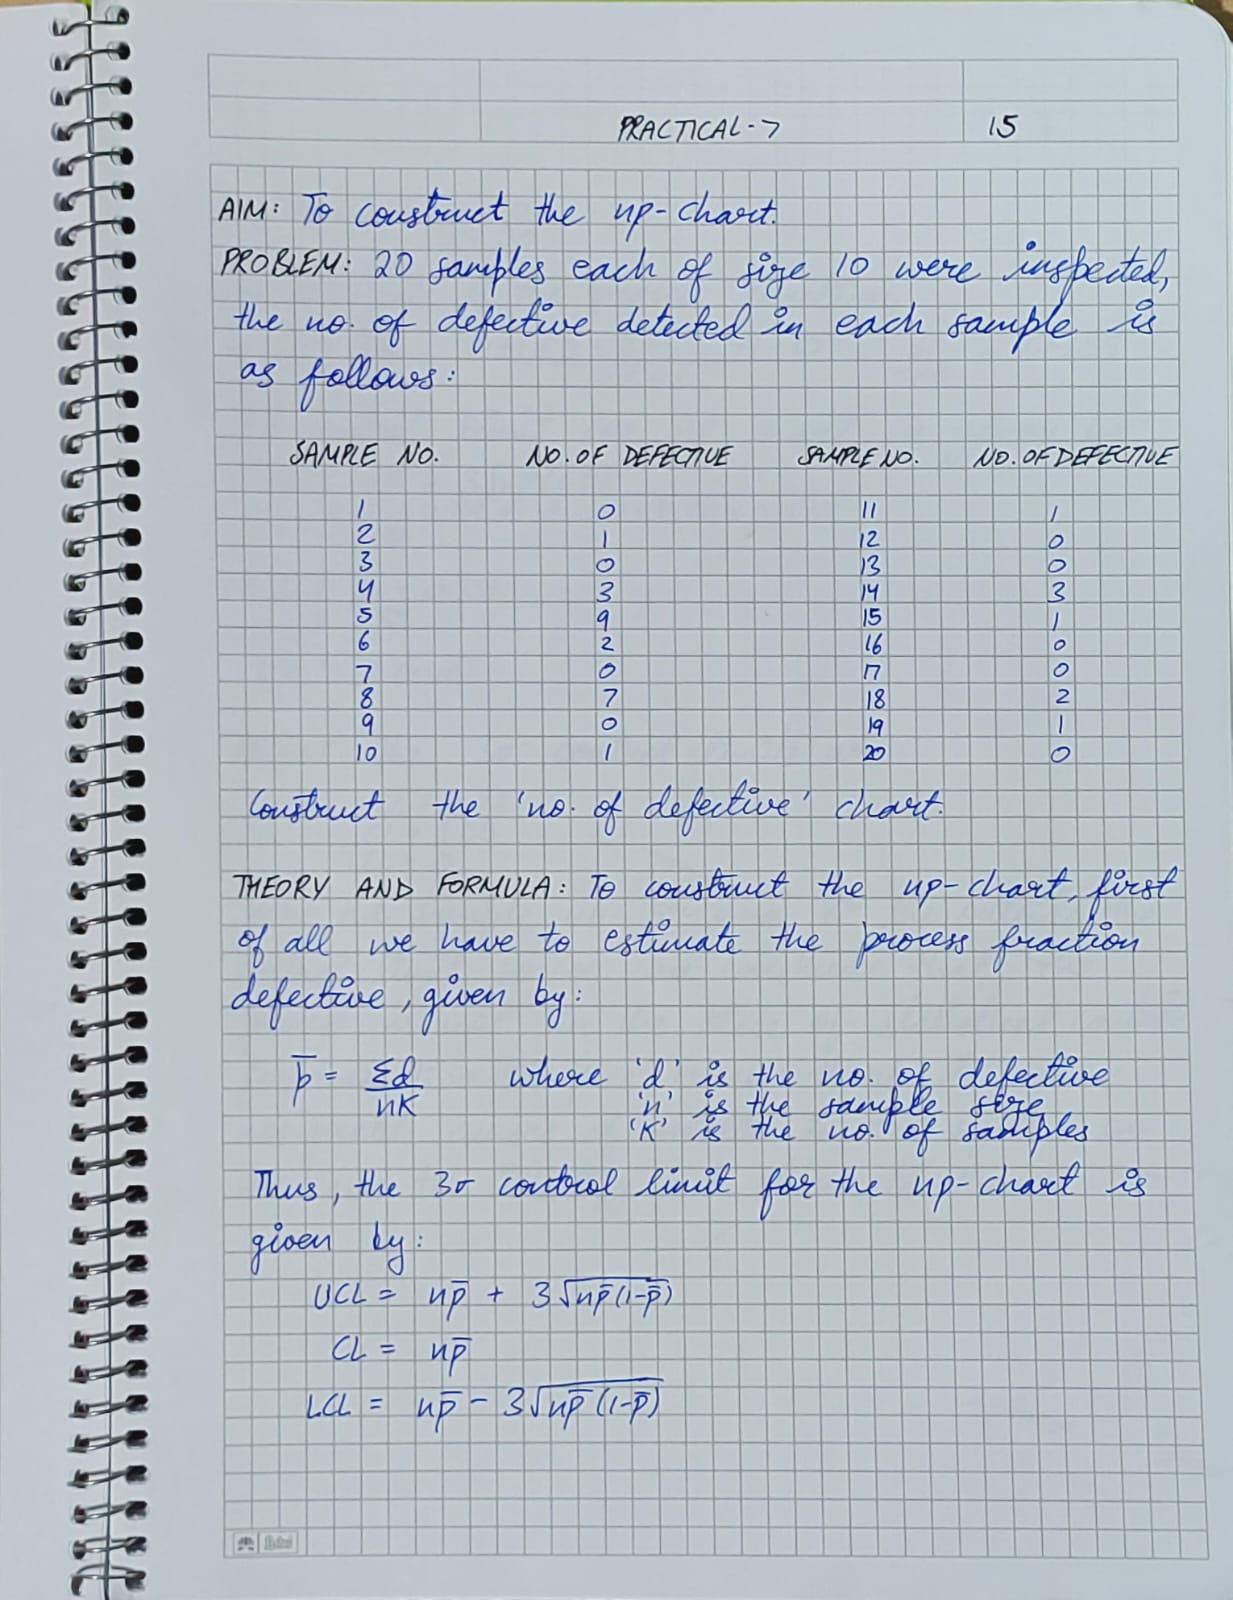 PRACTICAL-7 15
AIM: To construct the np-chart.
PROBLEM: 20 samples each of size 10 were inspected,
the no. of defective detected in each sample is
as follows:
SAMPLE NO. NO. OF DEFECTIVE SAMPLE NO. NO. OF DEFECTIVE
1 0 11 1
2 1 12 0
3 0 13 0
4 3 14 3
5 9 15 1
6 2 16 0
7 0 17 0
8 7 18 2
9 0 19 1
10 1 20 0
Construct the 'no. of defective' chart.
THEORY AND FORMULA: To construct the np-chart, first
of all we have to estimate the process fraction
defective, given by:
p̄ = Σd/nK where 'd' is the no. of defective
'n' is the sample size
'K' is the no. of samples
Thus, the 3σ control limit for the np-chart is
given by:
UCL = np̄ + 3√np̄(1-p̄)
CL = np̄
LCL = np̄ - 3√np̄(1-p̄)